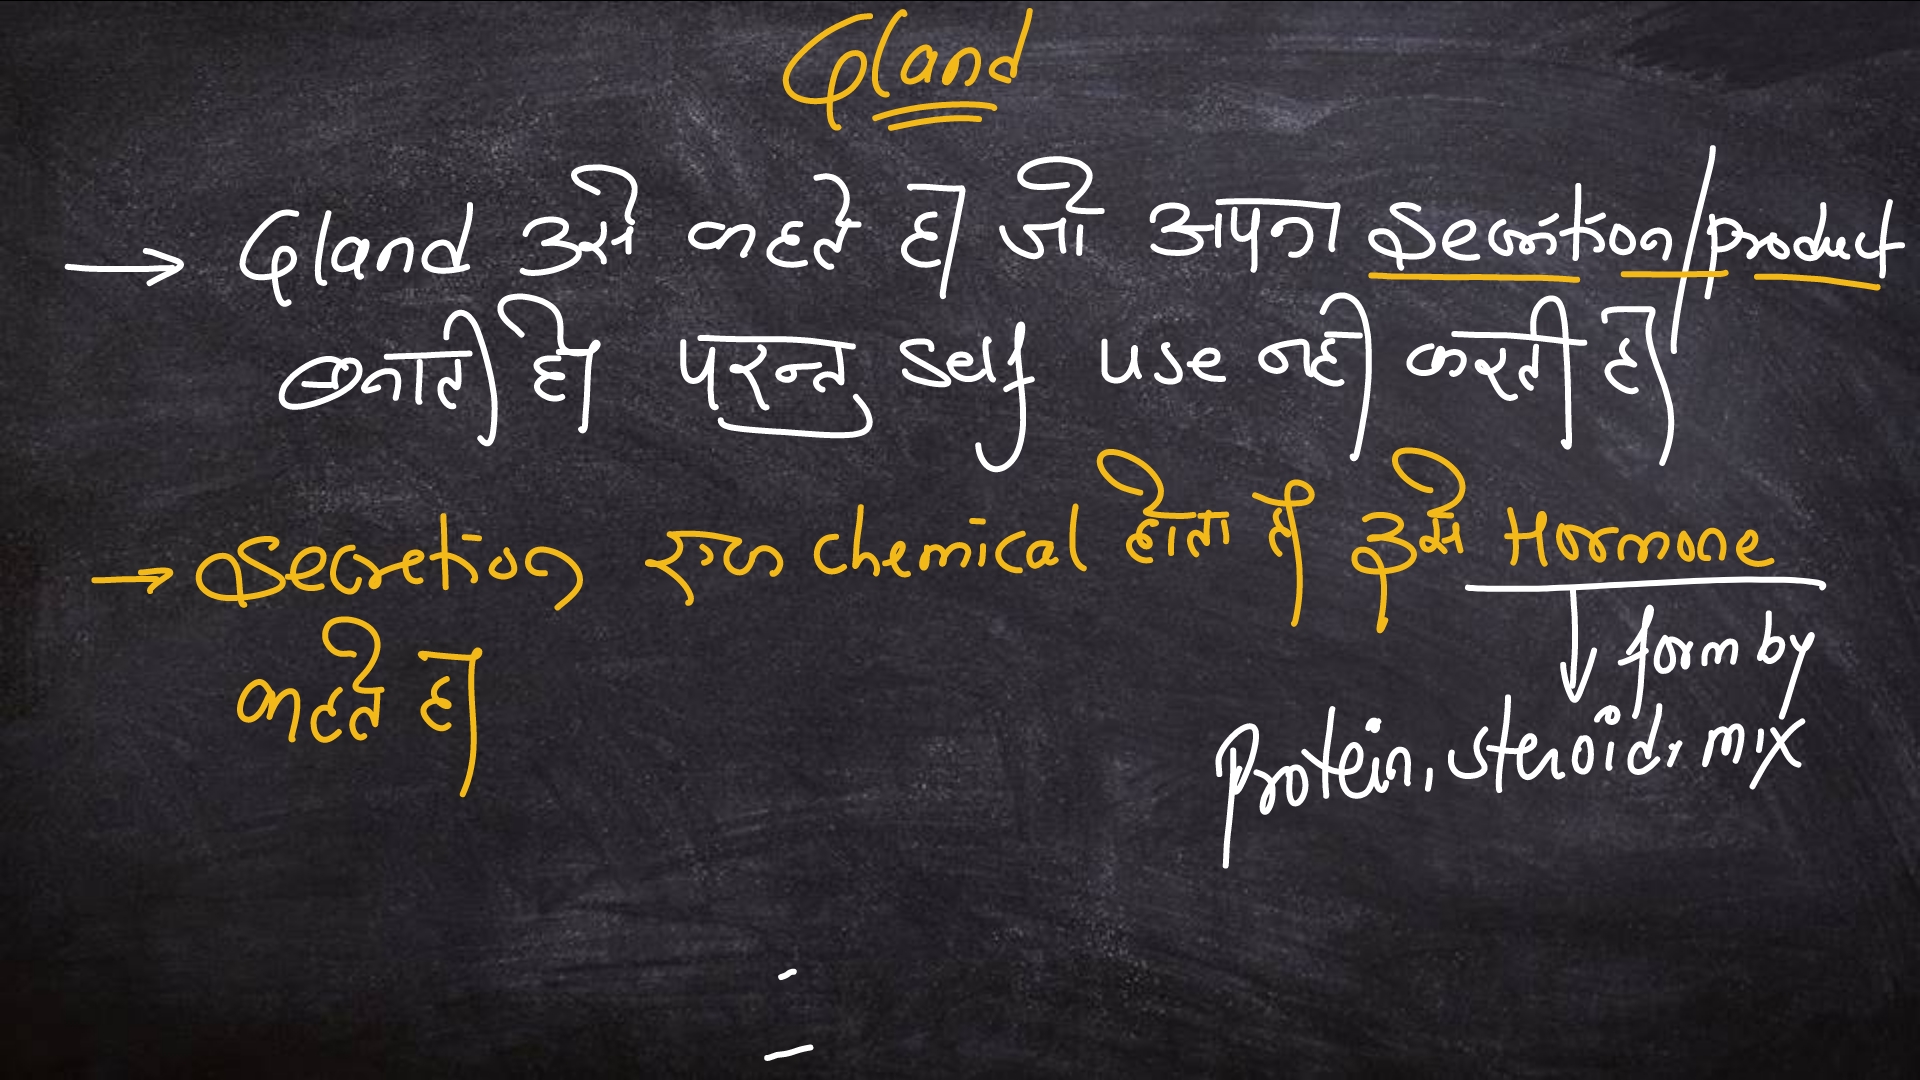 Gland
→ Gland उसे कहते है जो अपना Secretion/product
बनाती है। परन्तु self use नही करती है
→ Secretion एक chemical होता है इसे Hormone
कहते है
form by
Protein, steroid, mix